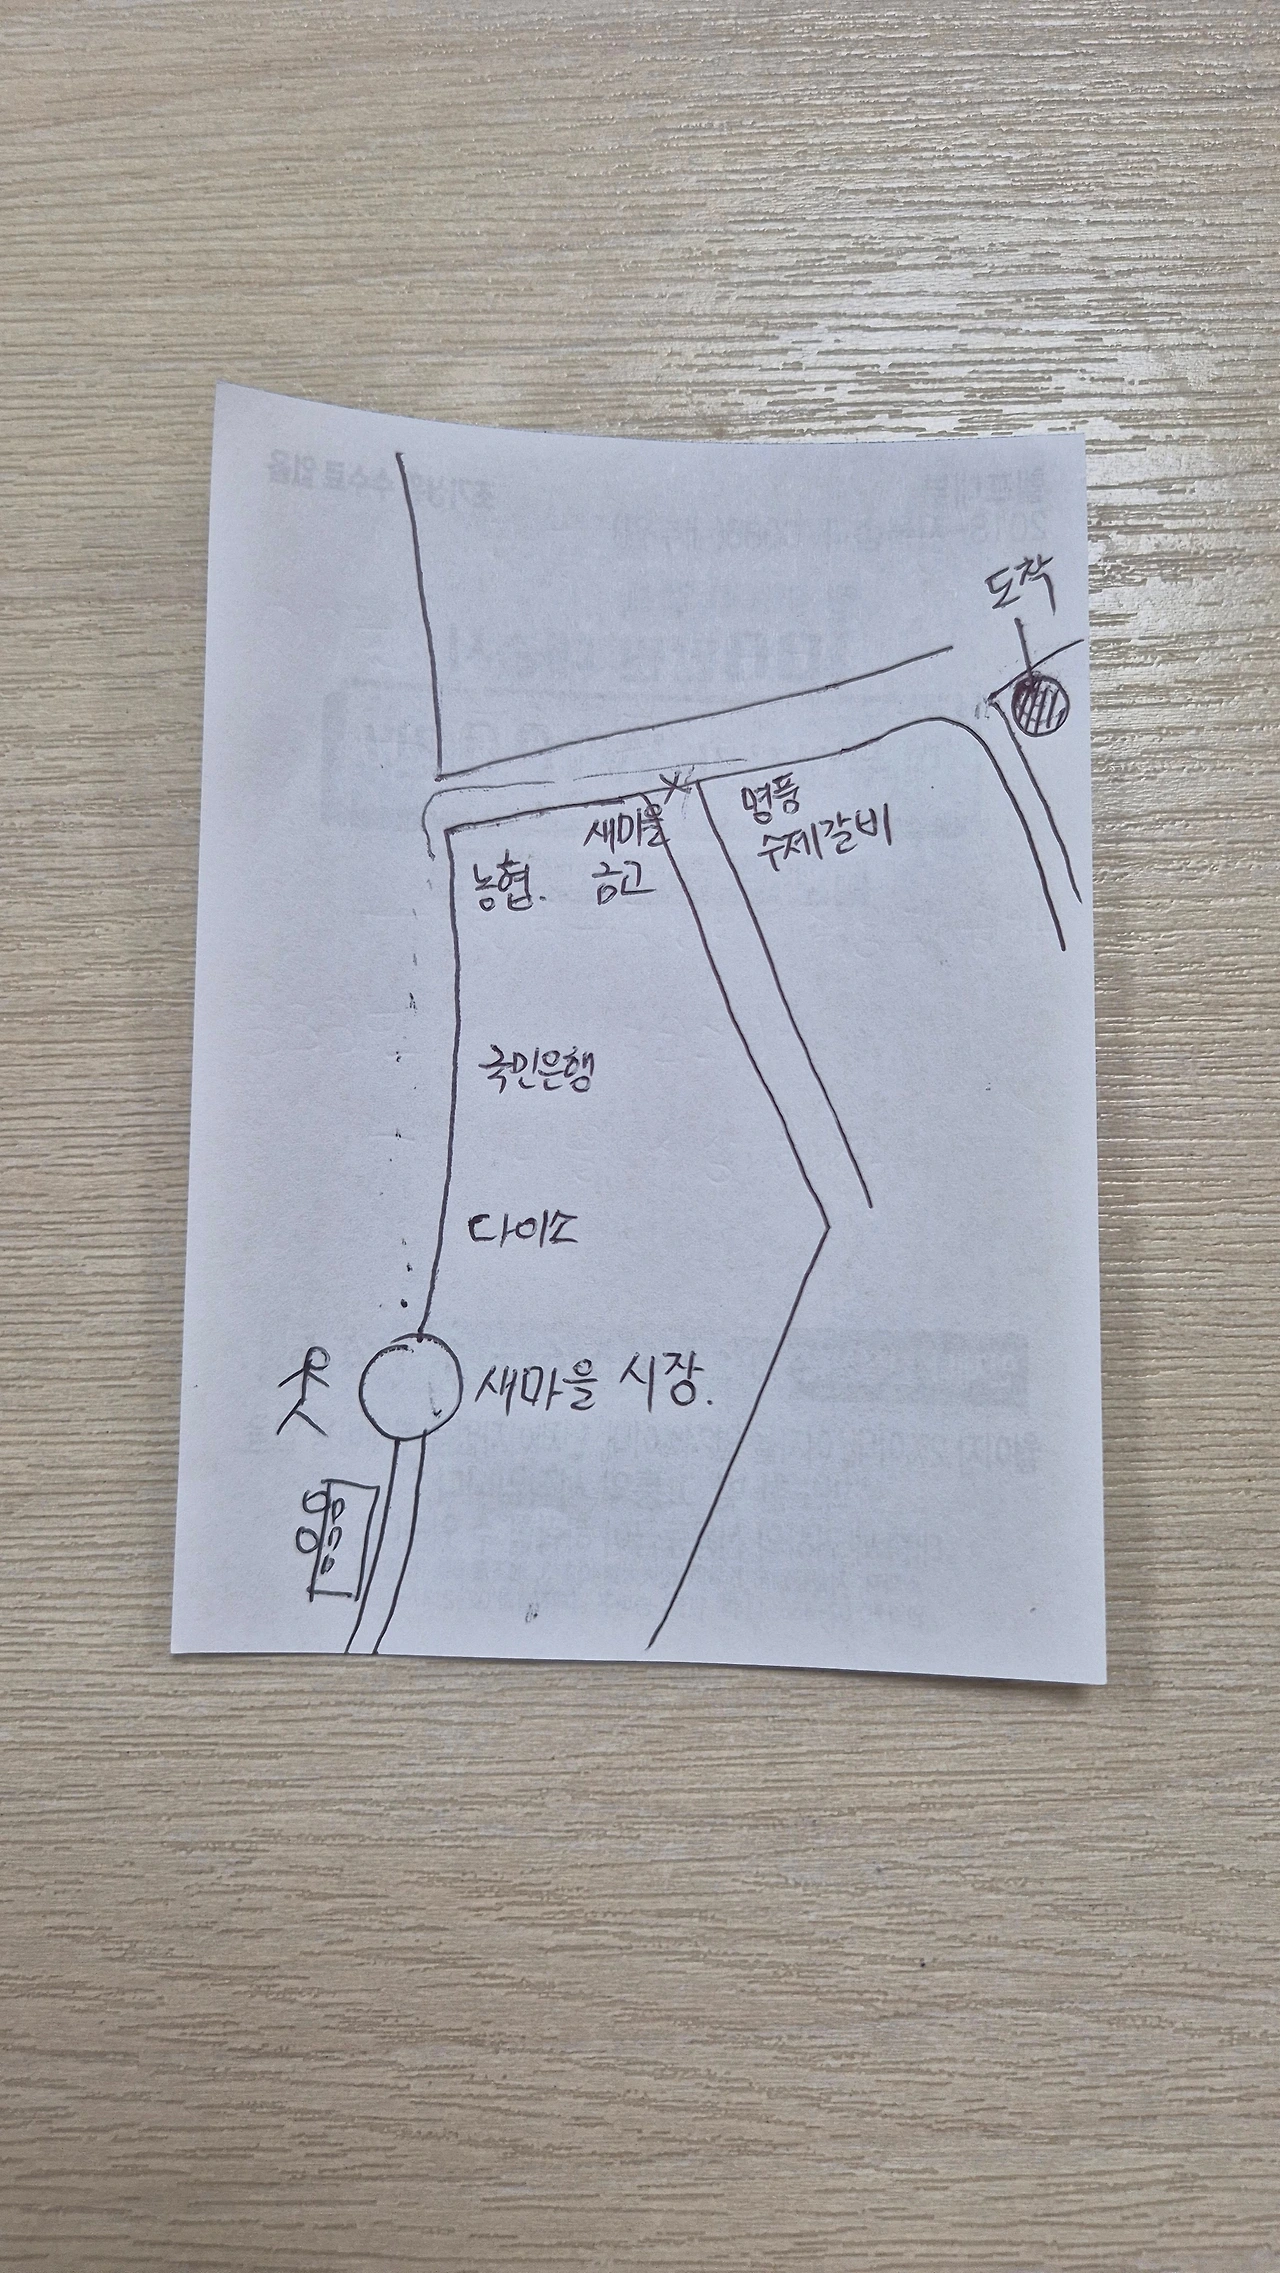 도착
명품
수제갈비
새마을
금고
농협.
국민은행
다이소
새마을 시장.